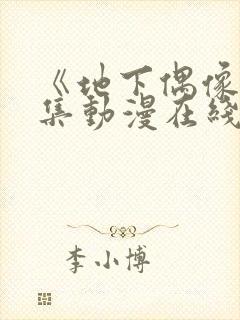 《地下偶像
集动漫在线
李小博